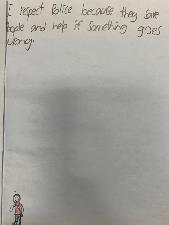 I respect Police because they save
people and help if something goes
wrong.